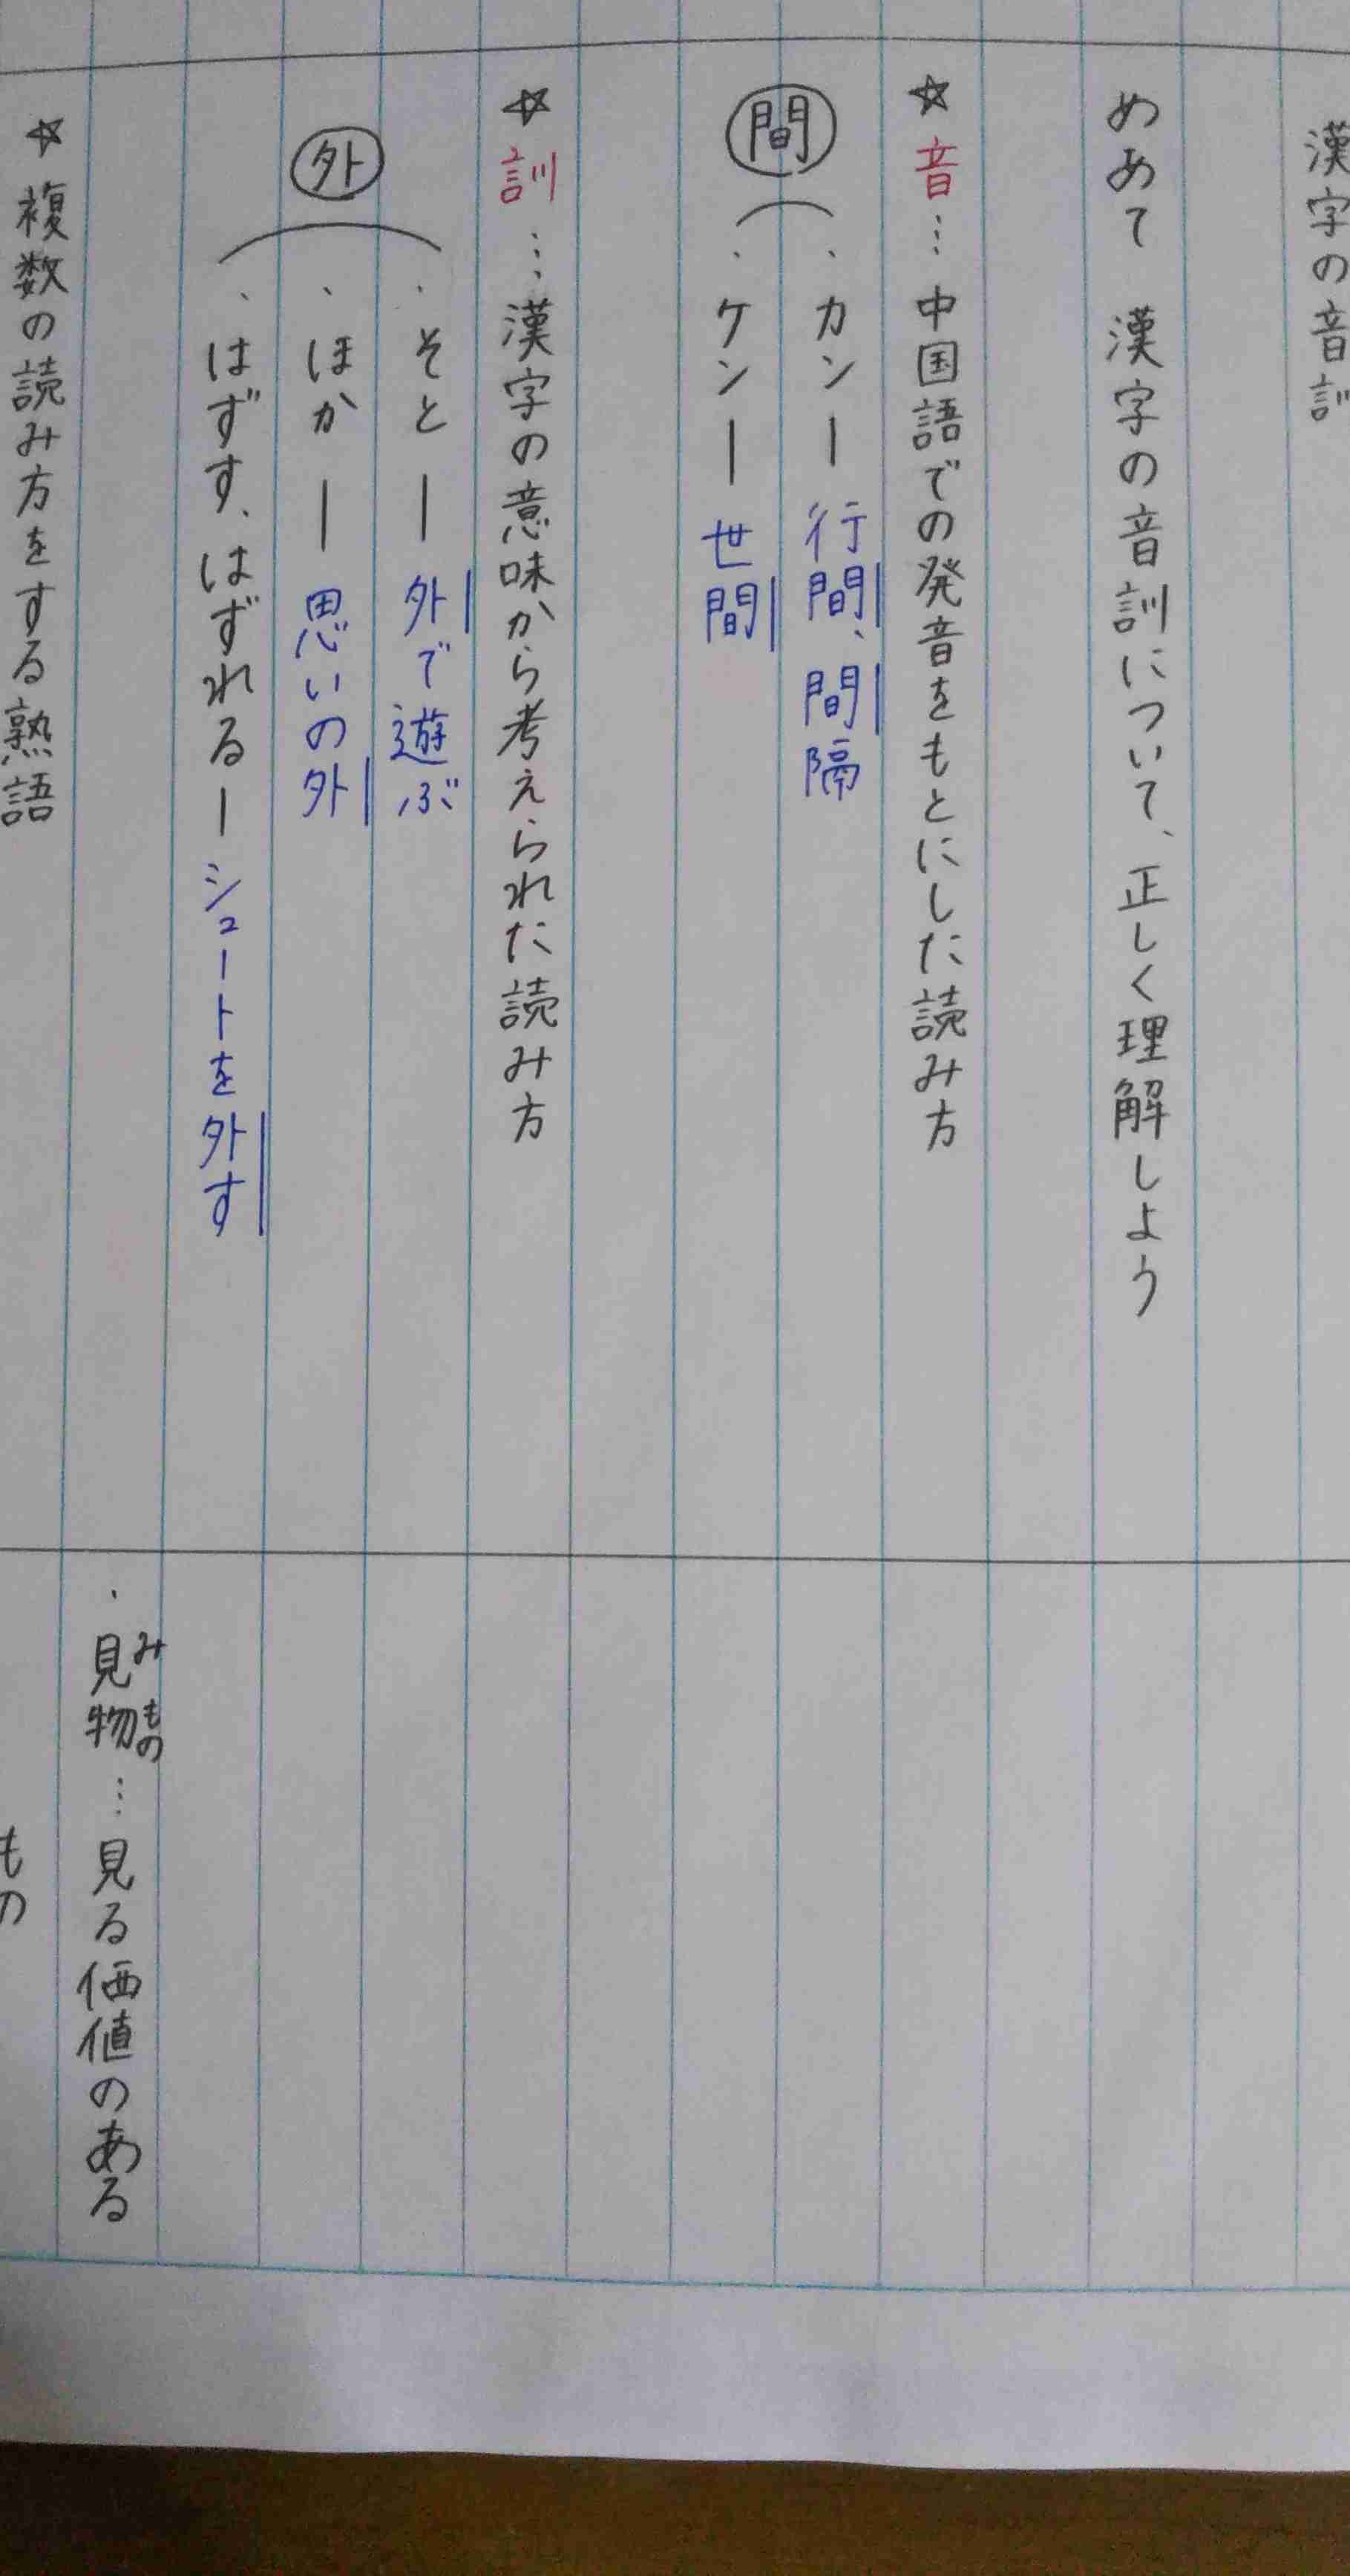 漢字の音訓
めあて 漢字の音訓について、正しく理解しよう
☆音…中国語での発音をもとにした読み方
間
・カンー行間、間隔
・ケンー世間
☆訓…漢字の意味から考えられた読み方
外
・そとー外で遊ぶ
・ほかー思いの外
・はずす、はずれるーシュートを外す
☆複数の読み方をする熟語
みもの
・見物…見る価値のある
もの